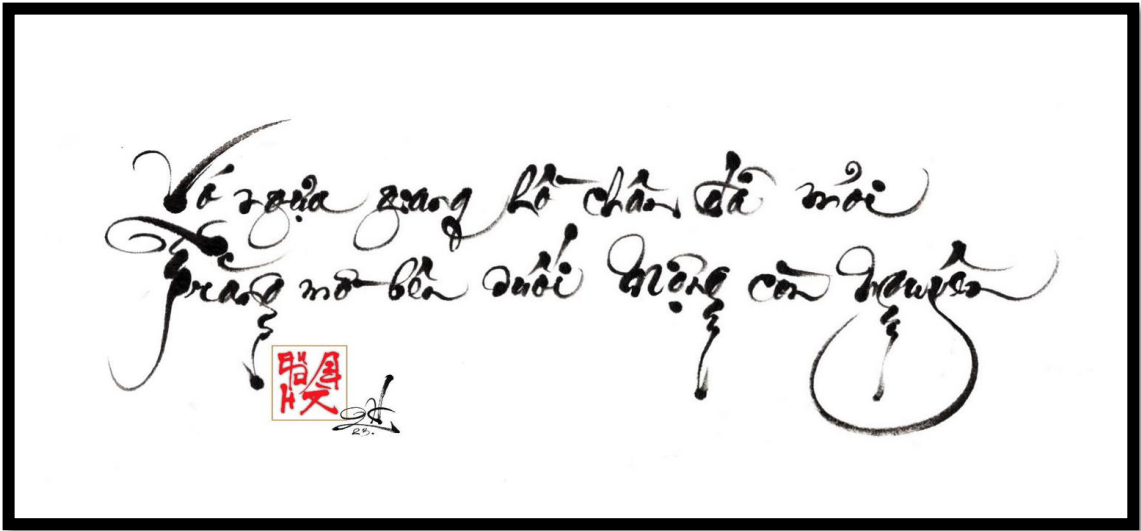 Vó ngựa giang hồ chân đã mỏi
Trăng mơ bên suối mộng còn nguyên
23.